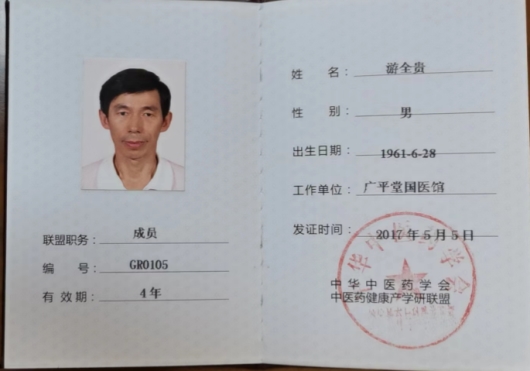 联盟职务： 成员
编 号： GR0105
有 效 期： 4年
姓 名： 游全贵
性 别： 男
出生日期： 1961-6-28
工作单位： 广平堂国医馆
发证时间： 2017年5月5日
中华中医药学会
中医药健康产学研联盟
中华中医药学会